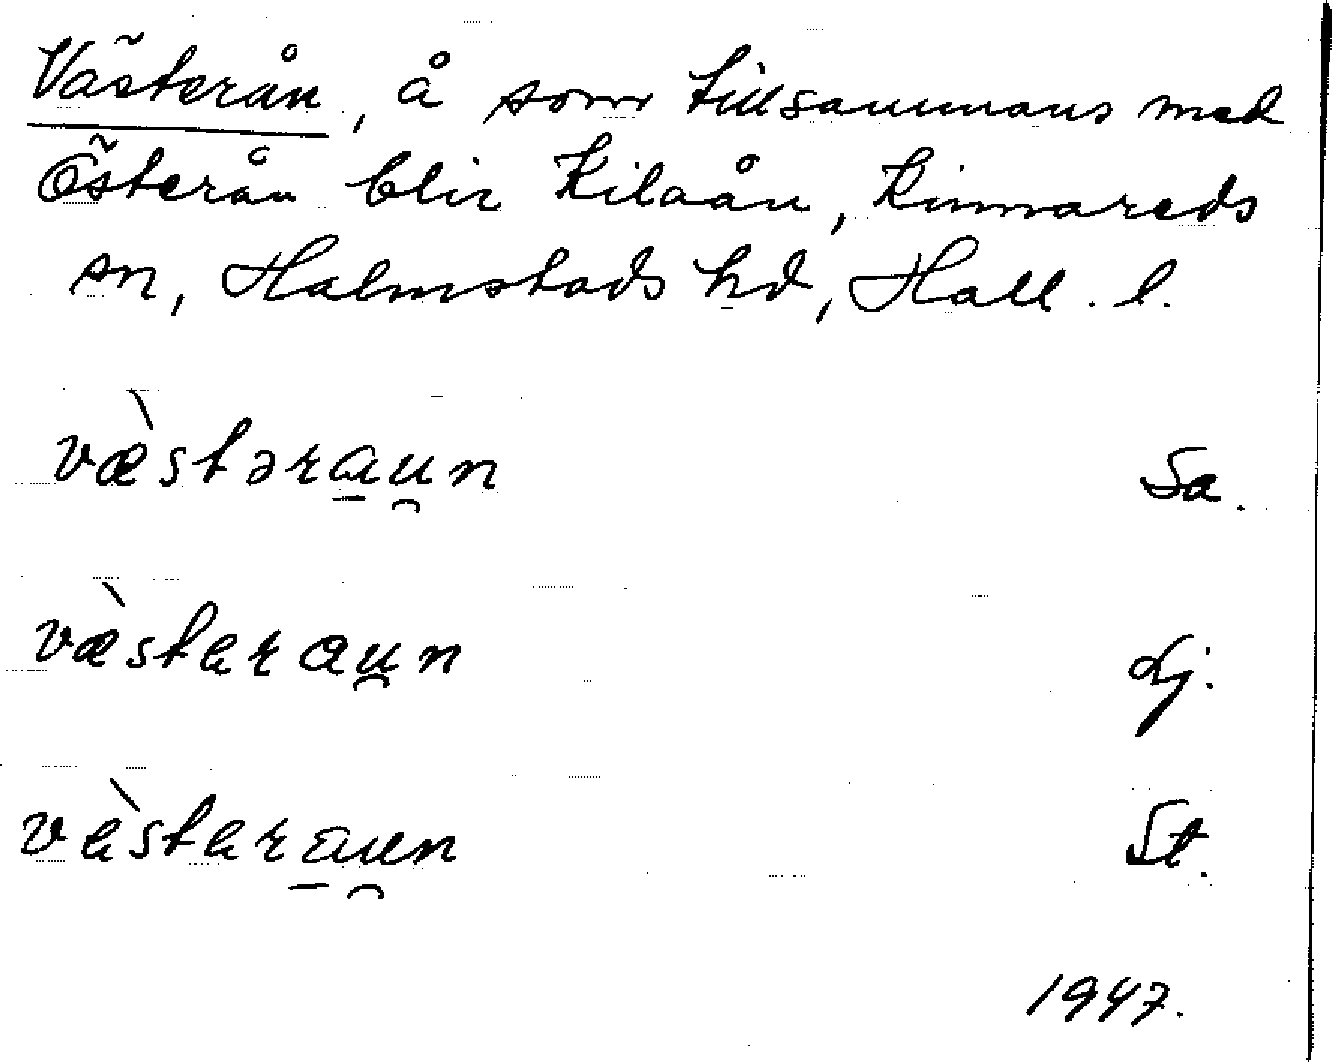 Västerån, å som tillsammans med
Österån blir Kilaån, Kinnareds
sn, Halmstads hd, Hall. l.
væ̀stəra̱u̯n Sa.
væ̀starau̯n Lj.
vàstara̱u̯n St.
1947.